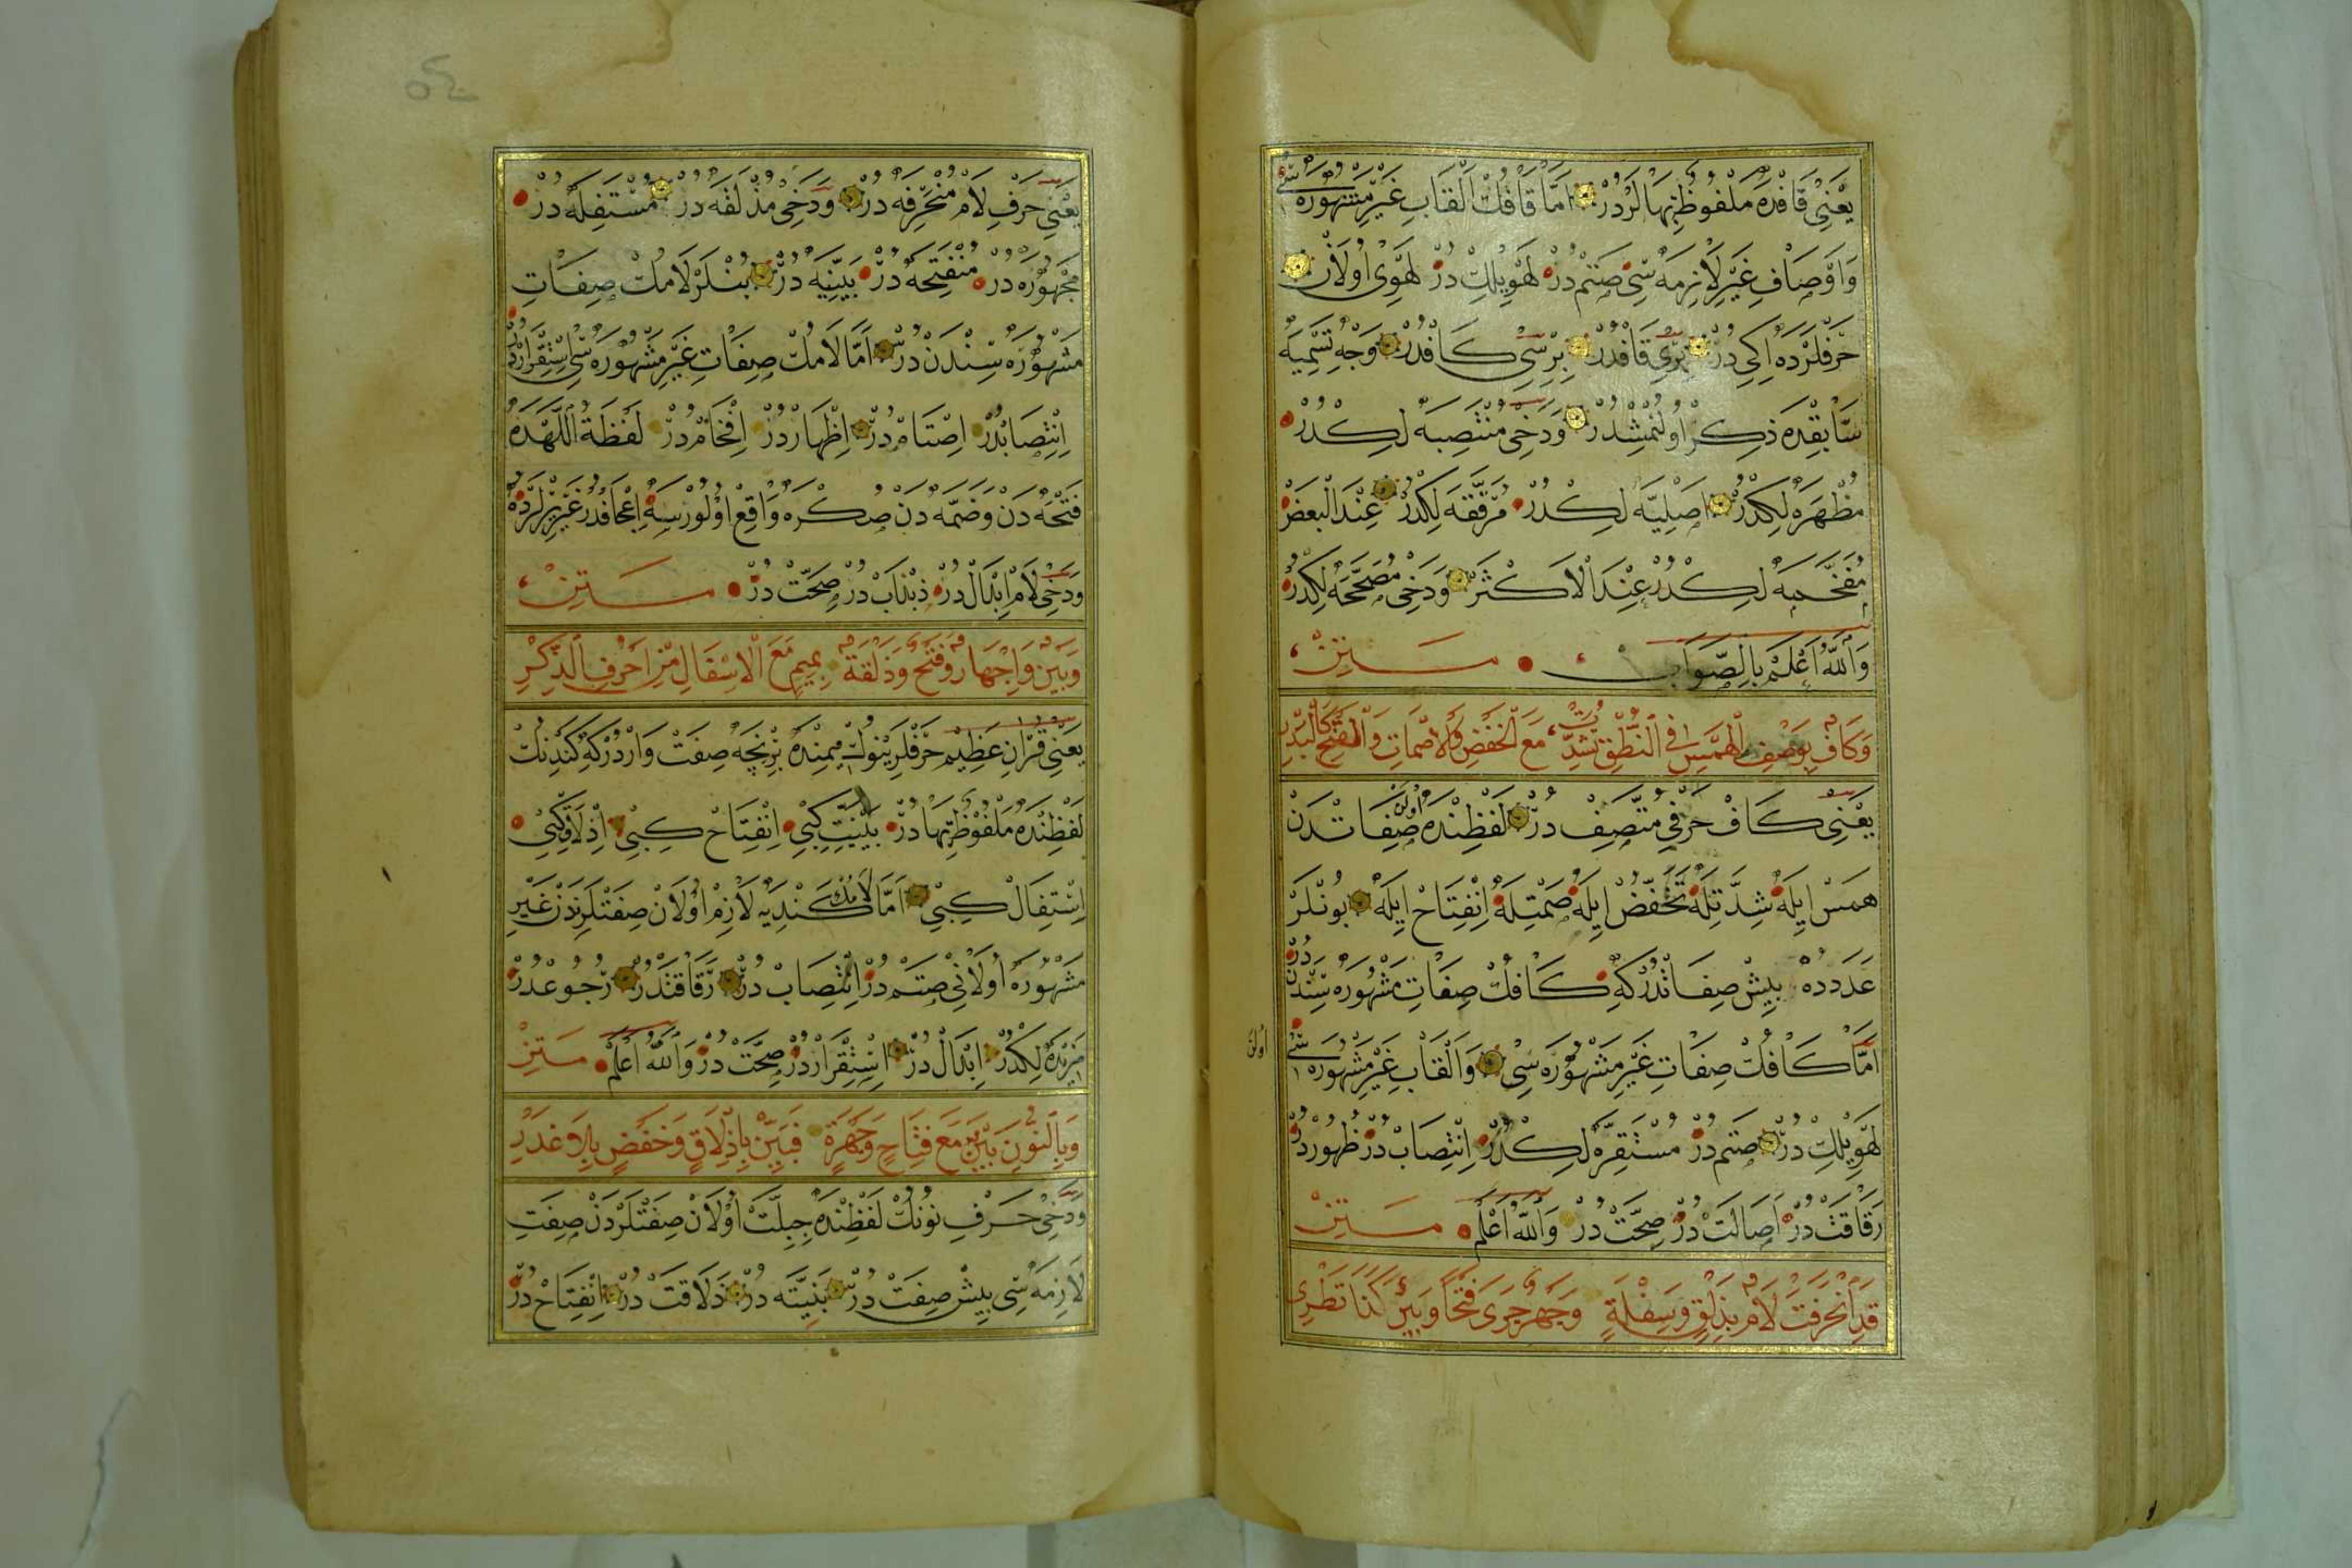 يَعْنِى قَافْدَه مَلْفُوظٌ بِهَا لَرْدُرْ اَمَّا قَافُكْ اَلْقَابِ غَيْرِ مَشْهُورَه سِى
وَاَوْصَافِ غَيْرِ لَازِمَه سِى صَتَمْ دُرْ لَهَوِيلِكْ دُرْ لَهَوِى اُولَانْ
حَرْفْلَرْدَه اِكِى دُرْ بِرِى قَافْدُرْ بِرْسِى كَافْدُرْ وَجْهِ تَسْمِيَه
سَابِقْدَه ذِكِرْ اُولُنْمِشْدُرْ وَدَخِى مُنْتَصِبَه لِكْدُرْ
مُظْهَرَه لِكْدُرْ اَصْلِيَّه لِكْدُرْ مُرَقَّقَه لِكْدُرْ عِنْدَ الْبَعْضْ
مُفَخَّمَه لِكْدُرْ عِنْدَ الْاَكْثَرْ وَدَخِى مُصَحَّحَه لِكْدُرْ
وَاللّٰهُ اَعْلَمُ بِالصَّوَابِ مَتِنْ
وَكَافٌ بِوَصْفِ الْهَمْسِ فِى النُّطْقِ شِدَّتْ مَعَ الْخَفْضِ وَالْاِصْمَاتِ وَالْفَتْحِ
يَعْنِى كَافْ حَرْفِى مُتَّصِفْ دُرْ لَفْظِنْدَه اُولَنْ صِفَاتْدَنْ
هَمَسْ اِيلَه شِدَّتِلَه تَخَفُّضْ اِيلَه صَمْتِلَه اِنْفِتَاحْ اِيلَه بُونْلَرْ
عَدَدْدَه بِيشْ صِفَاتْدُرْكِه كَافُكْ صِفَاتِ مَشْهُورَه سِنْدَنْ دُرْ
اَمَّا كَافُكْ صِفَاتِ غَيْرِ مَشْهُورَه سِى وَاَلْقَابِ غَيْرِ مَشْهُورَه سِى
اولن
لَهَوِيلِكْ دُرْ صَتَمْ دُرْ مُسْتَقِرَّه لِكْدُرْ اِنْتِصَابْ دُرْ ظُهُورْ دُرْ
رَقَاقَتْ دُرْ اَصَالَتْ دُرْ صِحَّتْ دُرْ وَاللّٰهُ اَعْلَمُ مَتِنْ
قَدِ انْحَرَفَتْ لَامٌ بِذَلْقٍ وَسِفْلَةٍ وَجَهْرٍ جَرَى فَتْحًا وَبَيْنٍ كَذَا تَطْرِى
يَعْنِى حَرْفِ لَامْ مُنْحَرِفَه دُرْ وَدَخِى مُذْلَقَه دُرْ مُسْتَفِلَه دُرْ
مَجْهُورَه دُرْ مُنْفَتِحَه دُرْ بَيْنِيَه دُرْ بُنْلَرْ لَامُكْ صِفَاتِ
مَشْهُورَه سِنْدَنْ دُرْ اَمَّا لَامُكْ صِفَاتِ غَيْرِ مَشْهُورَه سِى اِسْتِقْرَارْدُرْ
اِنْتِصَابْدُرْ اِصْتَامْ دُرْ اِظْهَارْدُرْ اِفْخَامْ دُرْ لَفْظَةُ اللّٰهْدَه
فَتْحَه دَنْ وَضَمَّه دَنْ صُكْرَه وَاقِعْ اُولُورْسَه
وَدَخِى لَامْ اِبْدَالْ دُرْ صِحَّتْ دُرْ مَتِنْ
وَبَيْنٍ وَاِجْهَارٍ وَفَتْحٍ وَذَلْقَةٍ بِمِيمٍ مَعَ الْاِسْفَالِ مِنْ اَحْرُفِ الذِّكْرِ
يَعْنِى قُرْاٰنِ عَظِيمْ حَرْفْلَرِينُوكْ مِيمِنْدَه بِرْنِچَه صِفَتْ وَارْدُرْكِه كَنْدِنِكْ
لَفْظِنْدَه مَلْفُوظٌ بِهَا دُرْ بَيْنِيَّتْ كِبِى اِنْفِتَاحْ كِبِى اِذْلَاقْ كِبِى
اِسْتِفَالْ كِبِى اَمَّا لَامُكْ كَنْدِيَه لَازِمْ اُولَانْ صِفَتْلَرِنْدَنْ غَيْرِ
مَشْهُورَه اُولَانِى صَتَمْ دُرْ اِنْتِصَابْ دُرْ رَقَاقَتْدُرْ رُجُوعْدُرْ
مَزِيدَه لِكْدُرْ اِبْدَالْ دُرْ اِسْتِقْرَارْدُرْ صِحَّتْ دُرْ وَاللّٰهُ اَعْلَمُ مَتِنْ
وَبِالنُّونِ بَيْنٌ مَعَ فِتَاحٍ وَجَهْرَةٍ فَبَيِّنْ بِاِذْلَاقٍ وَخَفْضٍ بِلَا غَدْرِ
وَدَخِى حَرْفِ نُونُكْ لَفْظِنْدَه جِبِلَّتْ اُولَانْ صِفَتْلَرْدَنْ صِفَتِ
لَازِمَه سِى بِيشْ صِفَتْ دُرْ بَيْنِيَّتَه دُرْ ذَلَاقَتْ دُرْ اِنْفِتَاحْ دُرْ